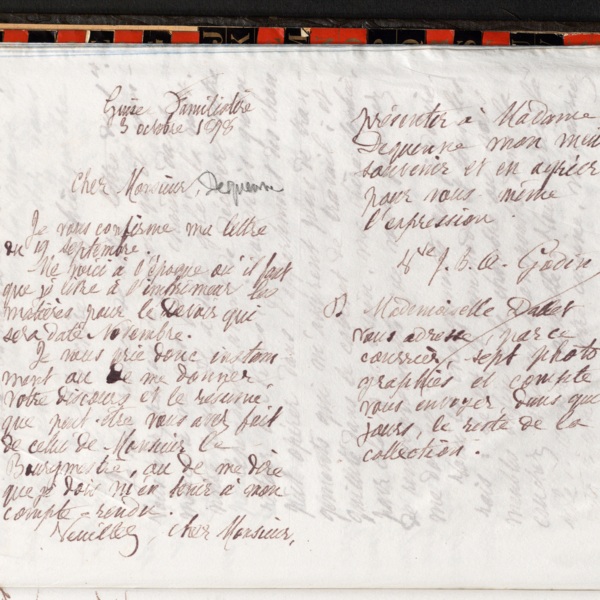 Guise Familistère
3 octobre 1898
Cher Monsieur, Dequenne
Je vous confirme ma lettre
du 19 septembre.
Me voici à l'époque où il faut
que je livre à l'imprimeur les
matières pour le Devoir qui
sera daté Novembre.
Je vous prie donc instam
ment ou de me donner,
votre discours et le résumé,
que peut-être vous avez fait
de celui de Monsieur le
Bourgmestre, ou de me dire
que je dois m'en tenir à mon
compte-rendu.
Veuillez, cher Monsieur,
présenter à Madame
Dequenne mon meill
souvenir et en agréer
pour vous même
l'expression.
Vve J. B. A. Godin
Mademoiselle Dallet
vous adresse, par ce
courrier, sept photo
graphies et compte
vous envoyer, dans que
jours, le reste de la
collection.